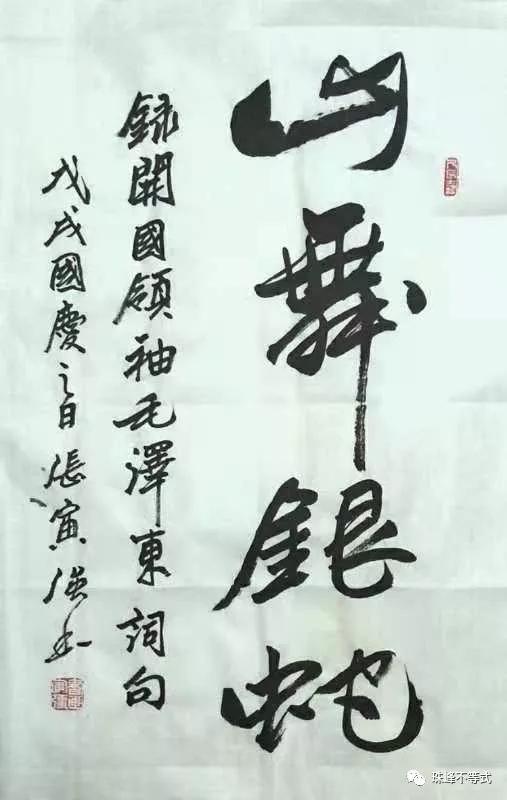 山舞銀蛇
録開國領袖毛澤東詞句
戊戌國慶之日張寅
珠峰不等式